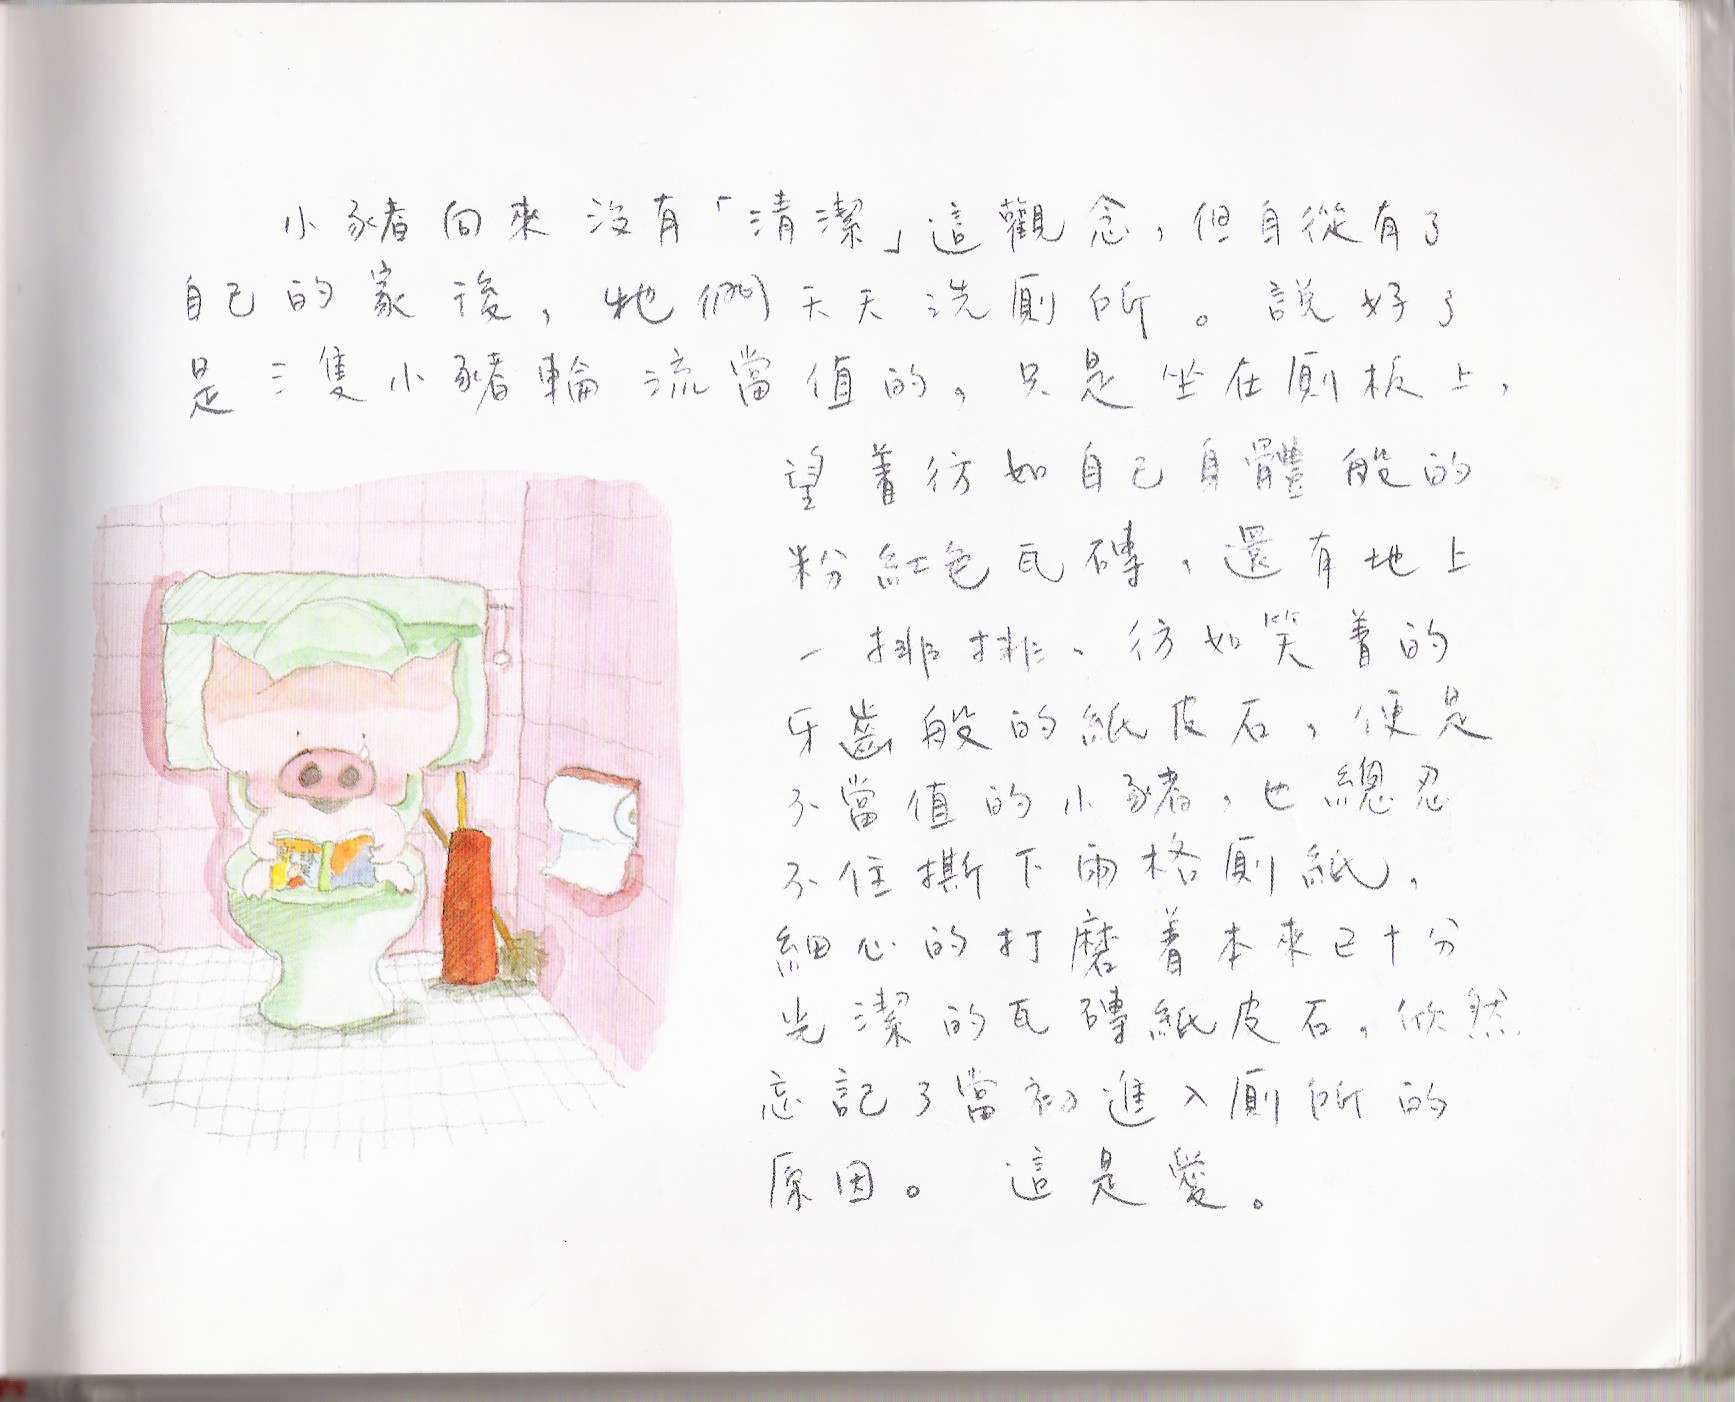 小豬向來沒有「清潔」這觀念，但自從有了
自己的家後，牠們天天洗廁所。說好了
是三隻小豬輪流當值的，只是坐在廁板上，
望着彷如自己身體般的
粉紅色瓦磚，還有地上
一排排、彷如笑着的
牙齒般的紙皮石，便是
不當值的小豬，也總忍
不住撕下兩格廁紙，
細心的打磨着本來已十分
光潔的瓦磚紙皮石，欣然
忘記了當初進入廁所的
原因。這是愛。